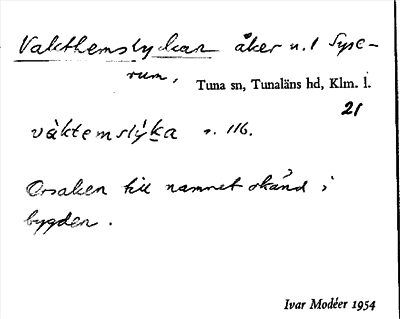 Vakthemslyckan åker n. 1 Syse-
rum,
Tuna sn, Tunaläns hd, Klm. l.
21
vàktemslýka s. 116.
Orsaken till namnet okänd i
bygden.
Ivar Modéer 1954